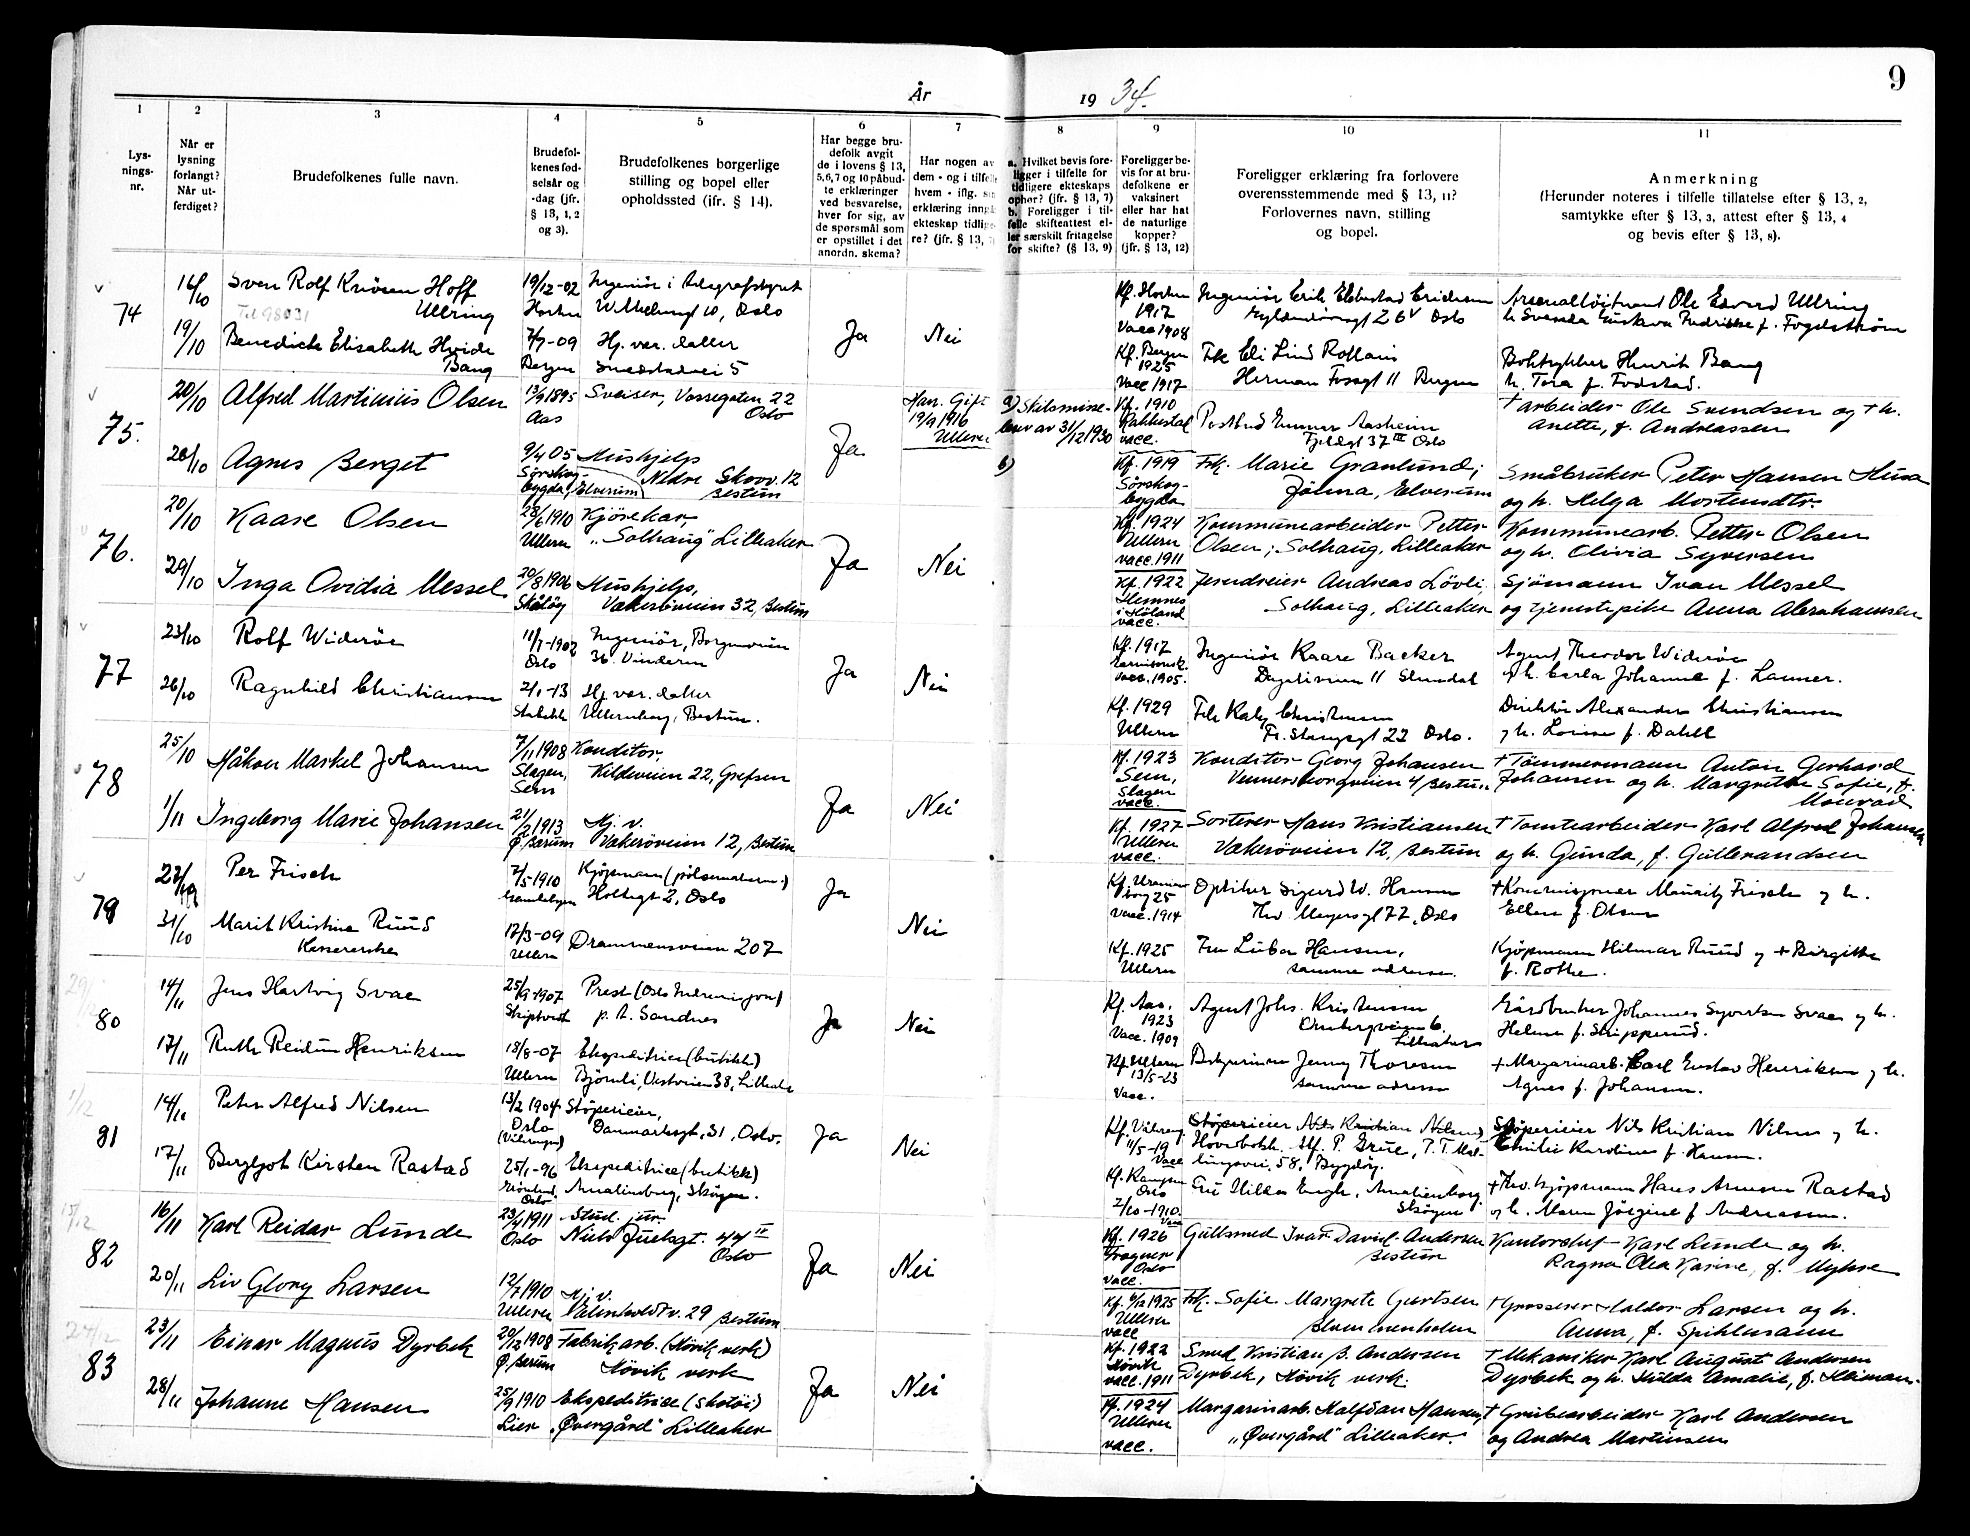 År 19 34.
9
1 2 3 4 5 6 7 8 9 10 11
Lys-
nings-
nr.
Når er
lysning
forlangt?
Når ut-
ferdiget?
Brudefolkenes fulle navn.
Brudefol-
kenes fød-
selsår og
-dag (jfr.
§ 13, 1, 2
og 3).
Brudefolkenes borgerlige
stilling og bopel eller
opholdssted (ifr. § 14).
Har begge bru-
defolk avgit
de i lovens § 13,
5,6,7 og 10 påbud-
te erklæringer
ved besvarelse,
hver for sig, av
de spørsmål som
er opstillet i det
anordn. skema?
Har nogen av
dem - og i tilfelle
hvem - iflg. sin
erklæring inngå
ekteskap tidlige
re? (jfr. § 13,
a. Hvilket bevis fore-
ligger i tilfelle for
tidligere ekteskaps
ophør? (jfr. § 13, 7)
b. Foreligger i til-
felle skifteattest el-
ler særskilt fritagelse
for skifte? (§ 13, 9)
Foreligger be-
vis for at bru-
defolkene er
vaksinert
eller har hat
de naturlige
kopper?
(jfr. § 13, 12)
Foreligger erklæring fra forlovere
overensstemmende med § 13, 11?
Forlovernes navn, stilling
og bopel.
Anmerkning
(Herunder noteres i tilfelle tillatelse efter § 13, 2,
samtykke efter § 13, 3, attest efter § 13, 4
og bevis efter § 13, 8).
74
16/10 Sven Rolf Hoff
Ullring
Tel 98031
19/12-02
Horten
Ingeniør i Telegrafstyret
10, Oslo
Ja Nei
Kf. Horten
1917
Vacc 1908
Ingeniør Erik Ericksen
Oslo
Ole Edvard Ullring
19/10 Benedicte Elisabeth Hvide
Bang
7/7-09
Bergen
Hj. vær. datter
5
Kf. Bergen
1925
Vacc 1917
Frk Eli Lind
Herman Fossgt 11 Bergen
Boktrykker Henrik Bang
h. Tora f. Fodstad.
75.
20/10 Alfred Martinius Olsen
13/9 1895
Aas
Sveiser, Vossegaten 22
Oslo
Ja
Han. Gift
19/9 1916
Ullern
a) Skilsmisse-
brev av 31/12 1930
b)
Kf. 1910
Rakkestad
vacc.
Postbud Gunnar Aasheim
37 III Oslo
+ arbeider Ole Svendsen og + h.
Anette, f. Andreassen
20/10 Agnes Berget
9/4 05
Sørskog-
bygda, Elverum
Hushjelp
Nedre Skovv. 12
Bestum
Kf. 1919
Sørskog-
bygda
Frk. Marie Granlund;
Jømna, Elverum
Småbruker Peter Hansen Husa
og h. Helga Mortensdtr.
76.
20/10 Kaare Olsen
28/6 1910
Ullern
Kjørekar,
"Solhaug" Lilleaker
Ja Nei
Kf. 1924
Ullern
vacc. 1911
Kommunearbeider Petter
Olsen; Solhaug, Lilleaker
Kommunearb. Petter Olsen
og h. Olivia Syversen
29/10 Inga Ovidia Messel
20/8 1906
Skåtøy
Hushjelp,
Vækerøveien 32, Bestum
Kf. 1922
Hemnes
i Høland
vacc.
Andreas Løvli,
Solhaug, Lilleaker
Sjømann Ivan Messel
og tjenestepike Anna Abrahamsen
77
23/10 Rolf Widerøe
11/7-1902
Oslo
Ingeniør, Borgenveien
36. Vinderen
Ja Nei
Kf. 1917
Vacc. 1905.
Ingeniør Kaare Backer
11 Slemdal
Agent Theodor Widerøe
og h. Carla Johanne f. Launer.
26/10 Ragnhild Christiansen
2/1-13
Stabekk
Hj. vær. datter
Ullernborg, Bestum.
Kf. 1929
Ullern
Frk Christensen
Fr. Stangsgt 22 Oslo.
Direktør Alexander Christiansen
og h. Louise f. Dahll
78
25/10 Håkon Markel Johansen
7/11 1908
Slagen,
Sem
Konditor,
Kildeveien 22, Grefsen
Ja Nei
Kf. 1923
Sem,
Slagen
vacc.
Konditor Georg Johansen
Vennersborgveien 4 Bestum
+ Tømmermann Anton Gerhard
Johansen og h. Margrethe Sofie, f.
Monrad
1/11 Ingeborg Marie Johansen
21/2 1913
Ø. Bærum
Hj. v.
Vækerøveien 12, Bestum
Kf. 1927
Ullern
vacc.
Sorterer Hans Kristiansen
Vækerøveien 12, Bestum
+ Tomtearbeider Karl Alfred Johansen
og h. Gunda, f. Gulbrandsen
79
Per Frisch
7/5-1910
Gamlebyen
Kjøpmann
Holtegt 2, Oslo
Ja Nei
25
Vacc. 1914
Optiker Sigurd W. Hansen
Thv. Meyersgt 77, Oslo
+ Kommisjonær Mauritz Frisch og h.
Ellen f. Olsen
31/10 Marit Kristine Ruud
17/3-09
Ullern
Drammensveien 207
Kf. 1925
Ullern
Fru Luba Hansen,
samme adresse.
Kjøpmann Hilmar Ruud og + Birgitte
f. Rothe.
80
14/11 Jens Hartvig Svae
25/9-1907
Skiptvet
Prest (Oslo Indremisjon)
p. t. Sandnes
Ja Nei
Kf. Aas.
1923
Vacc. 1909
Agent Johs. Kristensen
6.
Lilleaker
Gårdbruker Johannes Syvertsen Svae og h.
Helene f. Skipperud.
17/11 Ruth Reidun Henriksen
18/8-07
Ullern
Ekspeditrice (butikk)
Bjørnli, Vestveien 38, Lilleaker
Kf. Ullern
13/5-23
Vacc.
Jenny Thoresen
samme adresse
+ Margarinarb. Carl Gustav Henriksen og h.
Agnes f. Johansen.
1/12
81
14/11 Peter Alfred Nilsen
13/2 1904
Oslo
(Vålerengen)
Støperieier,
Danmarksgt. 31, Oslo.
Ja Nei
Kf. Våleren
11/5-19
Vacc
Støperieier Nils Kristian Nilsen
58, Bygdøy.
Støperieier Nils Kristian Nilsen og h.
Emilie Karoline f. Hansen.
17/11 Bergljot Kirsten Rastad
25/1-96
Grønland,
Oslo
Ekspeditrice (butikk)
Amalienborg, Skøyen.
Kf. Kampen
Oslo
2/10-1910.
Vacc
Fru Hilda Engh, Amalienborg
Skøyen
+ Thv. kjøpmann Hans Arnesen Rastad
og h. Maren Jørgine f Andreassen.
82
16/11 Karl Reidar Lunde
23/4 1911
Oslo
Stud. jur.
Niels Juelsgt. 44 IV
Oslo
Ja Nei
Kf. 1926
Frogner
Oslo
vacc.
Gullsmed Ivar David Andersen
Bestum
Kontorchef Karl Lunde og h.
Ragna Olea Karine, f. Myhre
20/11 Liv Glory Larsen
12/7 1910
Ullern
Hj. v.
29 Bestum
Kf. 6/12 1925
Ullern
vacc
Frk. Sofie Margrete Gjertsen
Blommenholm
+ Grosserer Haldor Larsen og h.
Anna, f. Spihlmann
24/12
83
23/11 Einar Magnus Dyrbek
20/12 1908
Ø. Bærum
Fabrikarb. (Høvik verk)
Høvik verk
Ja Nei
Kf. 1922
Høvik
vacc. 1911
Smed Kristian B. Andersen
Dyrbek, Høvik verk.
+ Mekaniker Karl August Andersen
Dyrbek og h. Hilda Amalie, f. Heiman.
28/11 Johanne Hansen
25/9 1910
Lier
Ekspeditrice (skotøi)
"Øvergård" Lilleaker
Kf. 1924
Ullern
vacc.
Margarinarb. Halfdan Hansen,
"Øvergård" Lilleaker.
+ Grubearbeider Karl Andersen
og Andrea Martinsen